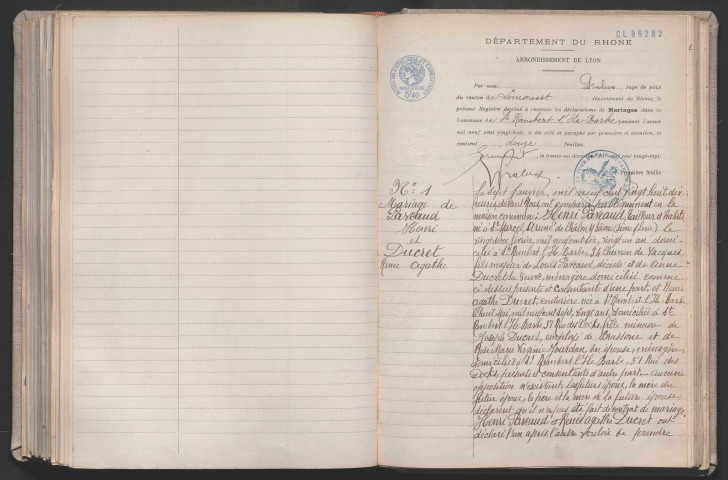 CL96282
DÉPARTEMENT DU RHONE
ARRONDISSEMENT DE LYON
Par nous, Juge de paix
du canton de Limonest département du Rhône, le
présent Registre destiné à recevoir les déclarations de Mariages dans la
Commune de St Rambert l'Ile Barbe pendant l'année
mil neuf cent vingt-huit, a été coté et paraphé par première et dernière, et
contient douze feuilles.
le trente-un décembre mil neuf cent vingt-sept.
Première feuille
N° 1
Mariage de
Parveaud
Henri
et
Ducret
Renée Agathe
Le sept Janvier, mil neuf cent vingt huit, dix
heures, devant Nous ont comparu publiquement en la
maison commune: Henri Parveaud, tailleur d'habits
né à St Marcel, Arrond. de Chalon s/ Saône (Saône & Loire) le
vingt février, mil neuf cent six, vingt un an domi-
cilié à St Rambert l'Ile Barbe, 34 Chemin de Vacques,
fils majeur de Louis Parveaud, décédé et de
Ducret, sa veuve, ménagère domiciliée comme
ci dessus présente et consentante d'une part, et Renée
Agathe Ducret, couturière née à St Rambert l'Ile Barbe
le huit Mai, mil neuf cent sept, vingt ans, domiciliée à St
Rambert l'Ile Barbe 51 Rue des Docks, fille mineure de
Joseph Ducret, employé de Brasserie et de
Rose Marie Virginie Jourdan, son épouse, ménagère,
domiciliés à St Rambert l'Ile Barbe, 51 Rue des
Docks, présents et consentants d'autre part. – aucune
opposition n'existant, les futurs époux, la mère du
futur époux, le père et la mère de la future épouse
déclarent qu'il n'a pas été fait de contrat de mariage
Henri Parveaud et Renée Agathe Ducret ont
déclaré l'un après l'autre vouloir se prendre